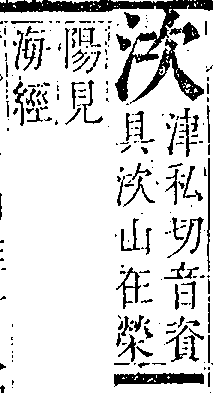 㳄
津私切音資
具㳄山在榮
陽見
海經